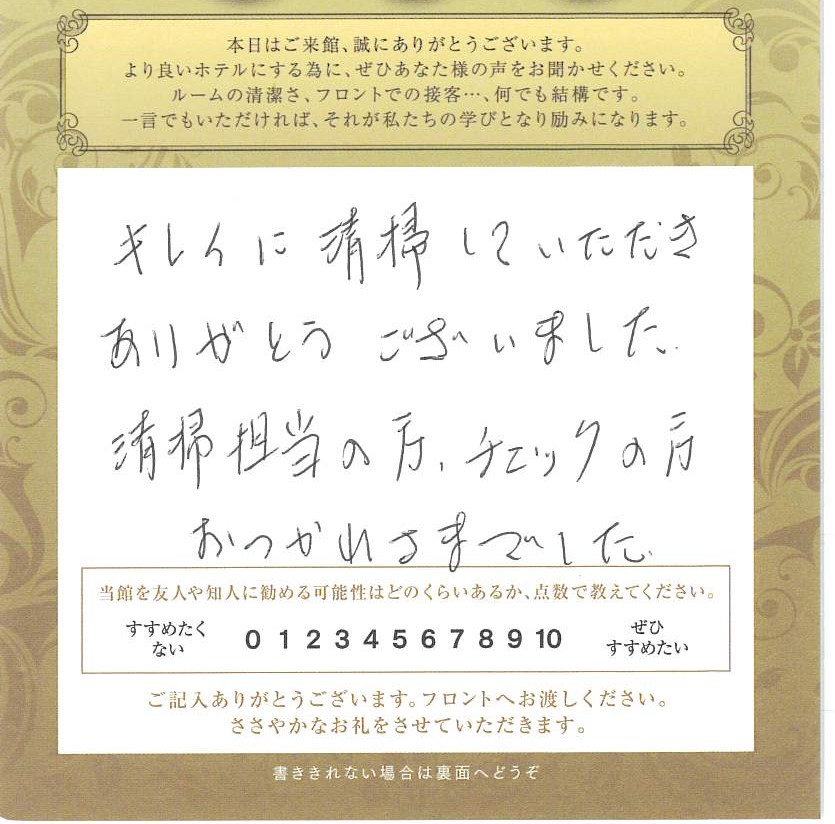 本日はご来館、誠にありがとうございます。
より良いホテルにする為に、ぜひあなた様の声をお聞かせください。
ルームの清潔さ、フロントでの接客…、何でも結構です。
一言でもいただければ、それが私たちの学びとなり励みになります。
キレイに清掃していただき
ありがとうございました。
清掃担当の方、チェックの方
おつかれさまでした。
当館を友人や知人に勧める可能性はどのくらいあるか、点数で教えてください。
すすめたく
ない
0 1 2 3 4 5 6 7 8 9 10
ぜひ
すすめたい
ご記入ありがとうございます。フロントへお渡しください。
ささやかなお礼をさせていただきます。
書ききれない場合は裏面へどうぞ